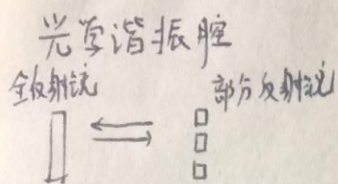 光学谐振腔
全反射镜
部分反射镜